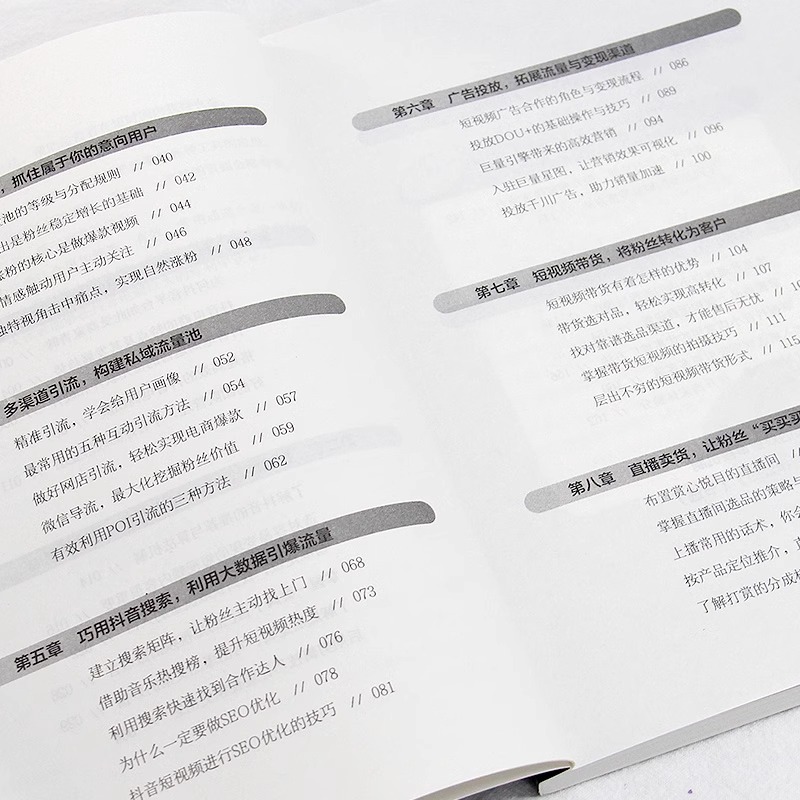 ，抓住属于你的意向用户
池的等级与分配规则 // 040
出是粉丝稳定增长的基础 // 042
涨粉的核心是做爆款视频 // 044
情感触动用户主动关注 // 046
独特视角击中痛点，实现自然涨粉 // 048
多渠道引流，构建私域流量池
精准引流，学会给用户画像 // 052
最常用的五种互动引流方法 // 054
做好网店引流，轻松实现电商爆款 // 057
微信导流，最大化挖掘粉丝价值 // 059
有效利用POI引流的三种方法 // 062
第五章 巧用抖音搜索，利用大数据引爆流量
建立搜索矩阵，让粉丝主动找上门 // 068
借助音乐热搜榜，提升短视频热度 // 073
利用搜索快速找到合作达人 // 076
为什么一定要做SEO优化 // 078
抖音短视频进行SEO优化的技巧 // 081
第六章 广告投放，拓展流量与变现渠道
短视频广告合作的角色与变现流程 // 086
投放DOU+的基础操作与技巧 // 089
巨量引擎带来的高效营销 // 094
入驻巨量星图，让营销效果可视化 // 096
投放千川广告，助力销量加速 // 100
第七章 短视频带货，将粉丝转化为客户
短视频带货有着怎样的优势 // 104
带货选对品，轻松实现高转化 // 107
找对靠谱选品渠道，才能售后无忧 //
掌握带货短视频的拍摄技巧 // 111
层出不穷的短视频带货形式 // 115
第八章 直播卖货，让粉丝“买买买
布置赏心悦目的直播间 //
掌握直播间选品的策略与
上播常用的话术，你会
按产品定位推介，直
了解打赏的分成